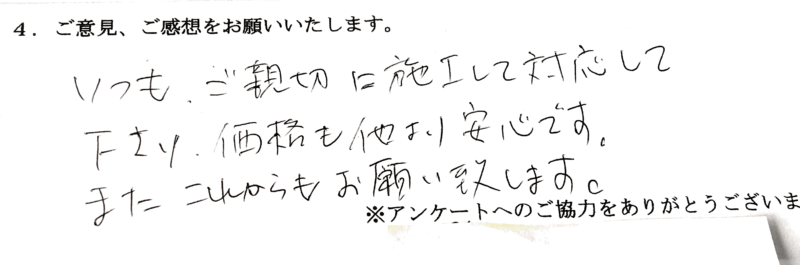 4．ご意見、ご感想をお願いいたします。
いつも、ご親切に施工して対応して
下さり、価格も他より安心です。
またこれからもお願い致します。
※アンケートへのご協力をありがとうございま